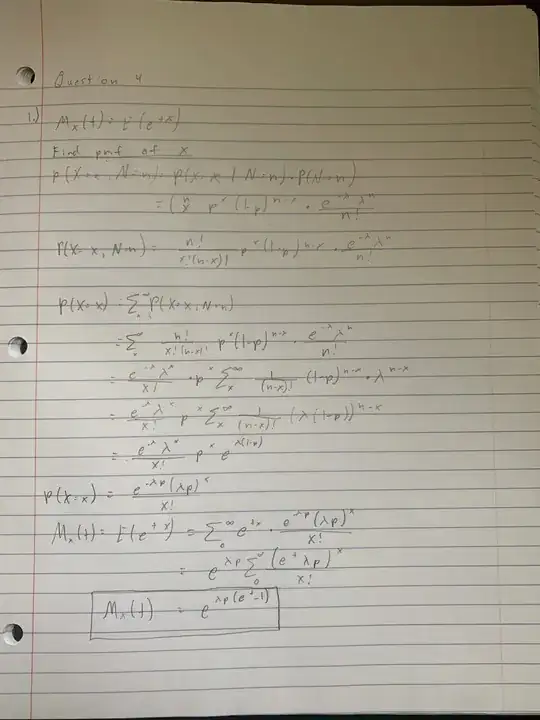 Question 4
1.) Mₓ(t) = E(e^{tx})
Find pmf of X
P(X=x, N=n) = P(X=x | N=n) · P(N=n)
= (n x p^x (1-p)^{n-x} · e^{-λ} λ^n / n!
P(X=x, N=n) = n! / x!(n-x)! p^x (1-p)^{n-x} · e^{-λ} λ^n / n!
P(X=x) = Σ_0^∞ P(X=x, N=n)
= Σ_0^∞ n! / x!(n-x)! p^x (1-p)^{n-x} · e^{-λ} λ^n / n!
= e^{-λ} λ^x / x! · p^x Σ_x^∞ 1 / (n-x)! (1-p)^{n-x} · λ^{n-x}
= e^{-λ} λ^x / x! p^x Σ_x^∞ 1 / (n-x)! (λ(1-p))^{n-x}
= e^{-λ} λ^x / x! p^x e^{λ(1-p)}
P(X=x) = e^{-λp} (λp)^x / x!
Mₓ(t) = E(e^{tx}) = Σ_0^∞ e^{tx} · e^{-λp} (λp)^x / x!
= e^{λp} Σ_0^∞ (e^t λp)^x / x!
Mₓ(t) = e^{λp(e^t-1)}